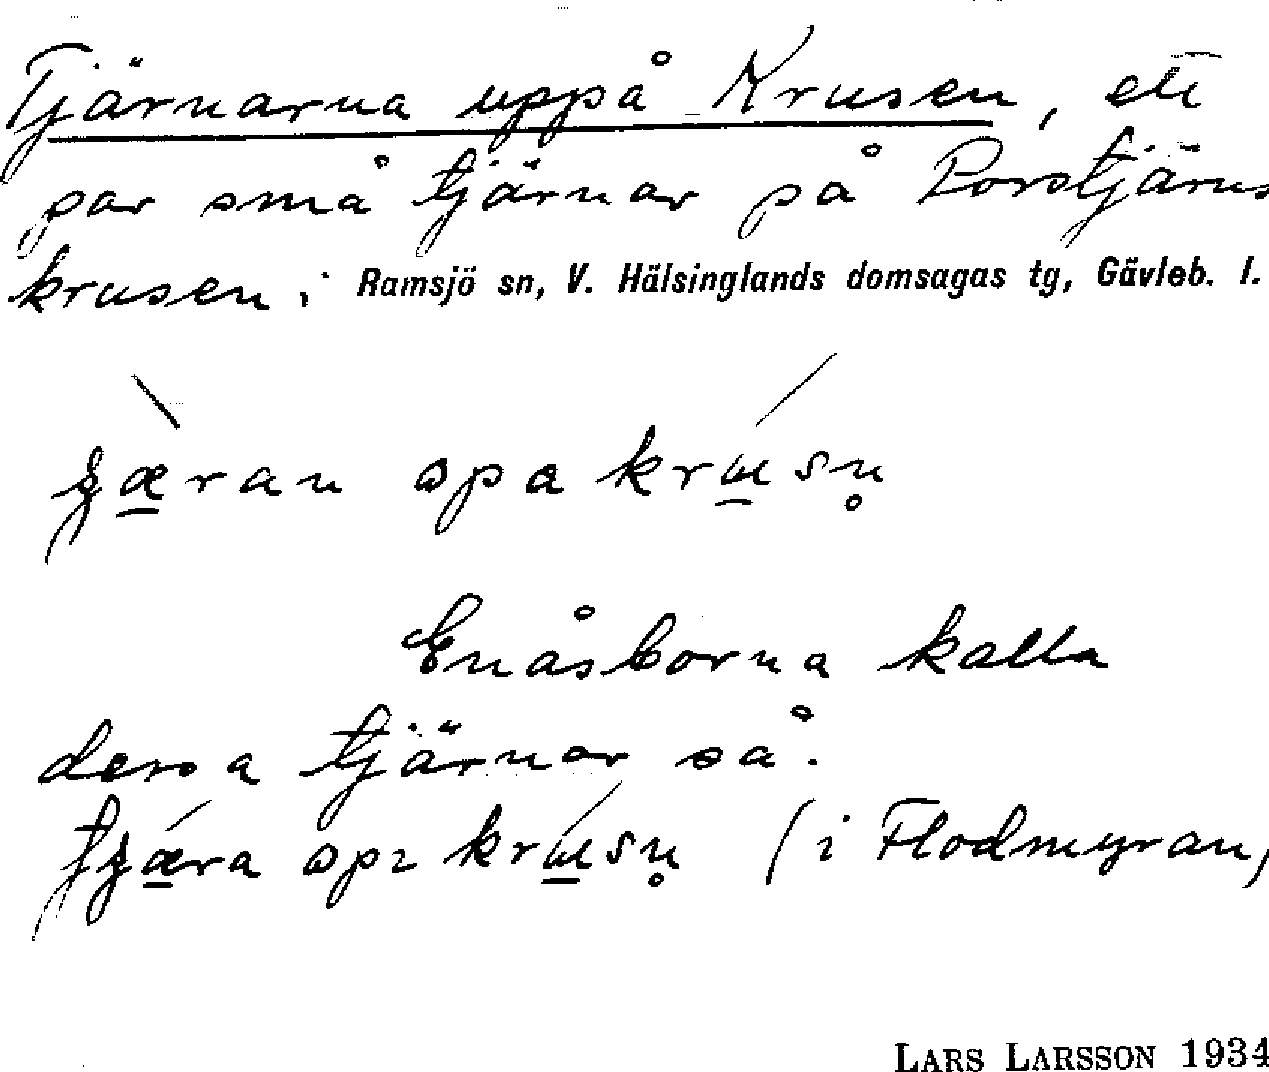 Tjärnarna uppå Krusen, ett
par små tjärnar på Porstjärns
krusen. Ramsjö sn, V. Hälsinglands domsagas tg, Gävleb. l.
Enåsborna kalla
dessa tjärnar så.
(i Flodmyran,
LARS LARSSON 1934